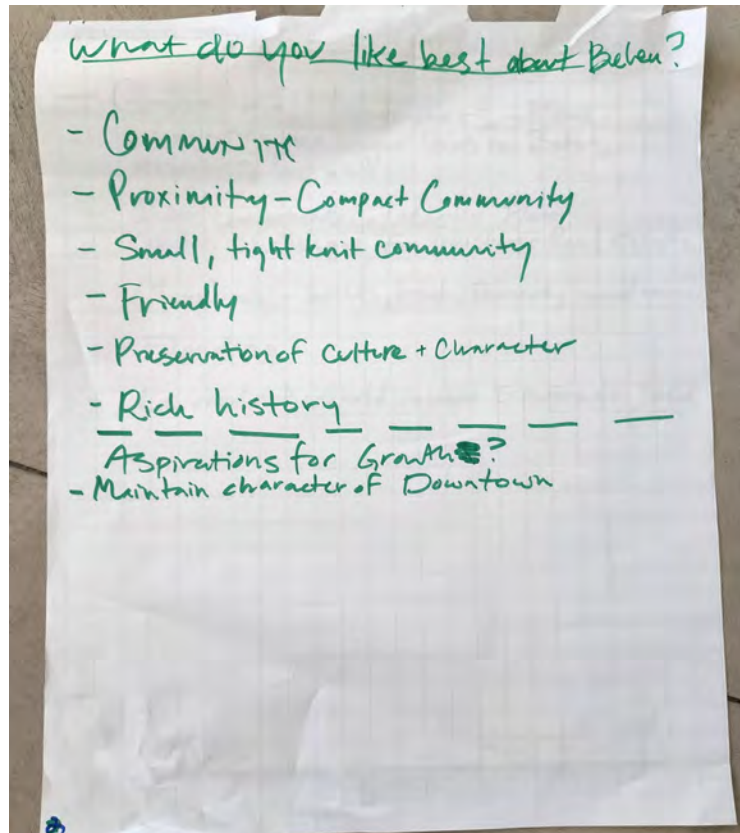 What do you like best about Belen?
- Community
- Proximity - Compact Community
- Small, tight knit community
- Friendly
- Preservation of culture + Character
- Rich history
Aspirations for Growth?
- Maintain character of Downtown